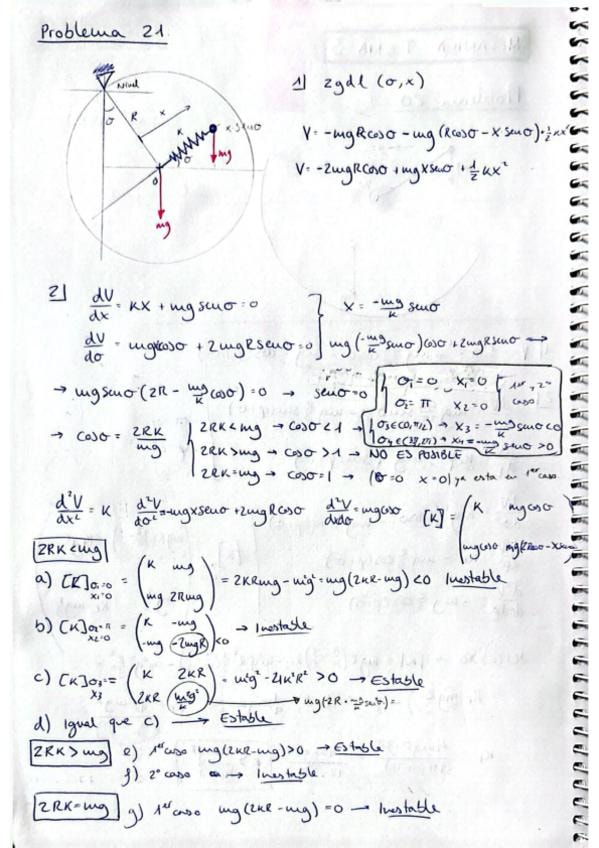 Problema 21.
Nivel
σ
R
x
K
x senσ
σ
mg
0
mg
1) 2gdl (σ,x)
V = -mgRcosσ - mg (Rcosσ - x senσ) + 1/2 kx²
V = -2mgRcosσ + mgxsenσ + 1/2 kx²
2) dV/dx = Kx + mg senσ = 0 } x = -mg/K senσ
dV/dσ = mgxcosσ + 2mgRsenσ = 0 } mg(-mg/K senσ)cosσ + 2mgRsenσ
→ mgsenσ (2R - mg/K cosσ) = 0 → senσ=0 { σ₁ = 0 x₁ = 0
σ₂ = π x₂ = 0 } 1er y 2º caso
→ cosσ = 2RK/mg { 2RK<mg → cosσ<1 → σ₃∈(0,π/2) → x₃ = -mg/K senσ<0
x₄ = -mg/K senσ >0
2RK>mg → cosσ>1 → NO ES POSIBLE
2RK=mg → cosσ=1 → (σ=0 x=0) ya esta en 1er caso
d²V/dx² = K d²V/dσ² = -mgxsenσ + 2mgRcosσ d²V/dxdσ = mgcosσ [K] = (K mgcosσ
mgcosσ
2RK<mg
a) [K]σ₁=0 x₁=0 = (K mg mg 2Rmg) = 2KRmg - m²g² = mg(2KR-mg) <0 Inestable
b) [K]σ₂=π x₂=0 = (K -mg -mg -2mgR) <0 → Inestable
c) [K]σ₃= x₃ = (K 2KR 2KR m²g²/K) = m²g² - 4K²R² >0 → Estable
d) Igual que c) → Estable
2RK>mg e) 1er caso mg(2KR-mg)>0 → Estable
f) 2º caso → Inestable
2RK=mg g) 1er caso mg(2KR-mg) = 0 → Inestable